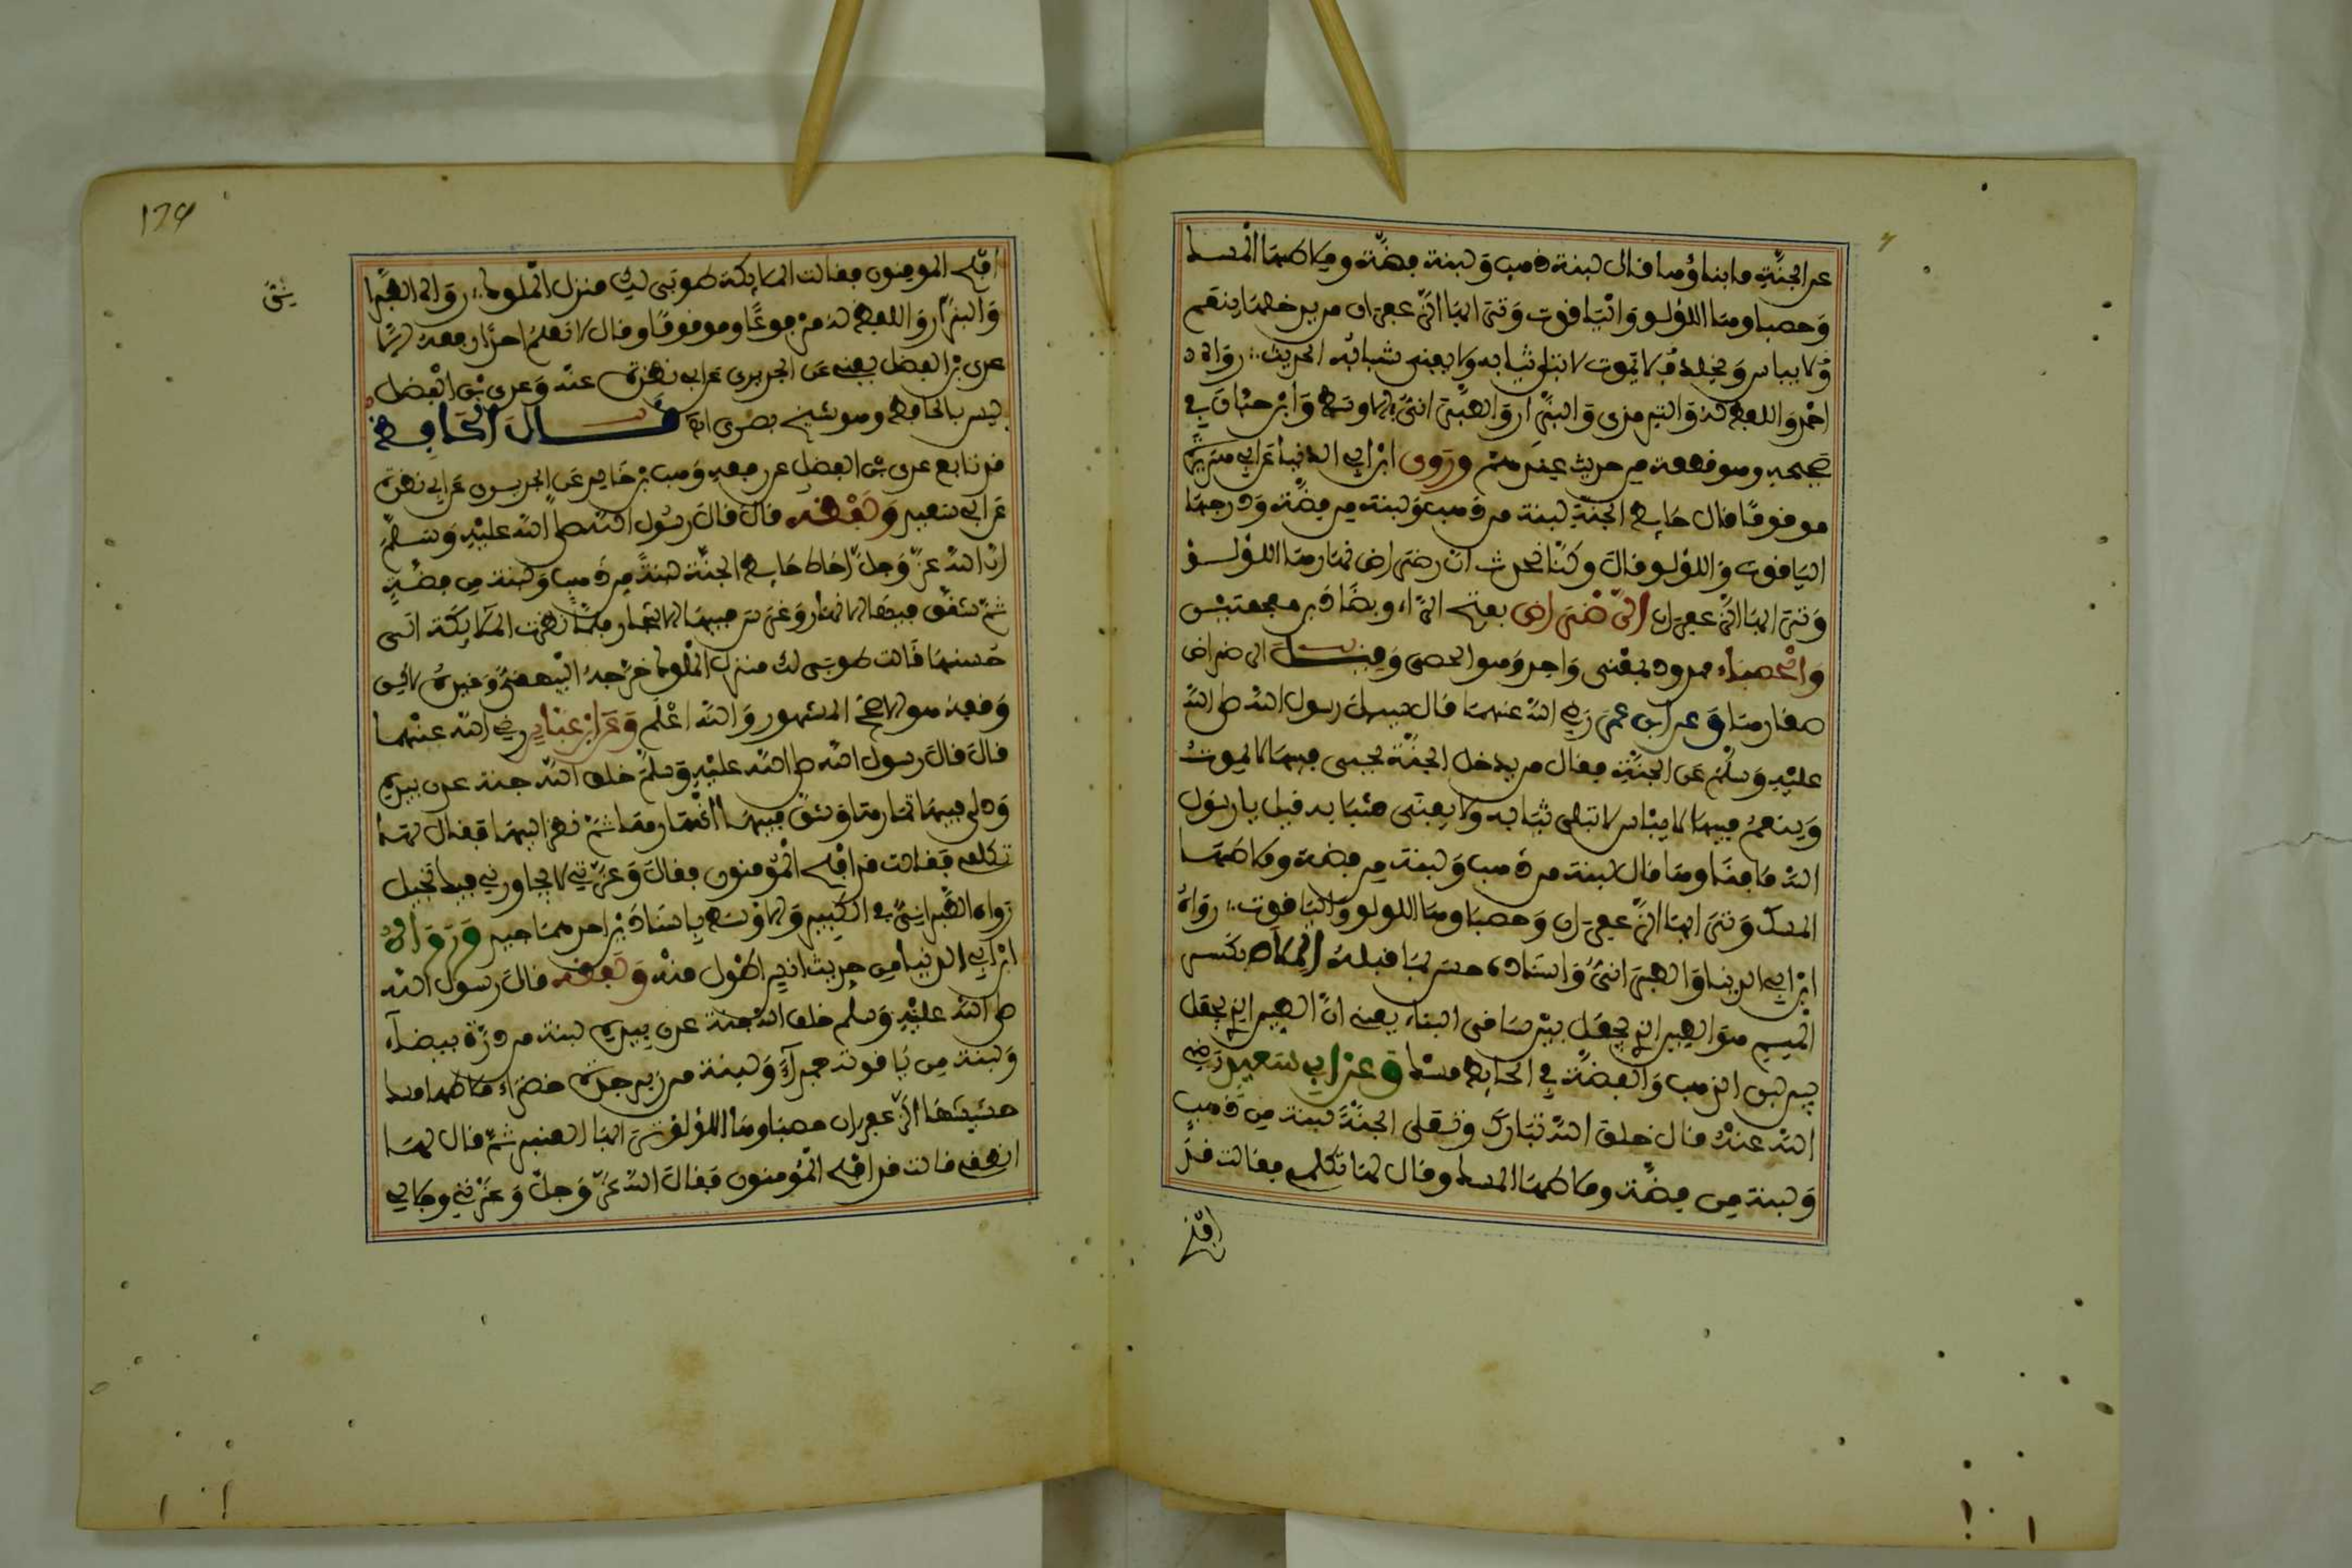 عن الجنة ما بناؤها قال لبنة ذهب ولبنة فضة وملاطها المسك
وحصباؤها اللؤلؤ والياقوت وترابها الزعفران من يدخلها ينعم
ولا يبأس ويخلد لا يموت لا تبلى ثيابه ولا يفنى شبابه الحديث رواه
احمد واللفظ له والترمذي والبزار والطبراني في الاوسط وابن حبان في
صحيحه وهو قطعة من حديث عندهم وروى ابن ابي الدنيا عن ابي هريرة
موقوفا قال حايط الجنة لبنة من ذهب ولبنة من فضة ودرجها
الياقوت واللؤلؤ قال وكنا نحدث ان رضراض انهارها اللؤلؤ
وترابها الزعفران الرضراض بفتح الراء وبضادين معجمتين
والحصباء ممدود بمعنى واحد وهو الحصى وقيل الرضراض
صغارها وعن ابن عمر رضي الله عنهما قال سيل رسول الله صلى الله
عليه وسلم عن الجنة فقال من يدخل الجنة يحيى فيها لا يموت
وينعم فيها لا يبأس لا تبلى ثيابه ولا يفنى شبابه قيل يا رسول
الله ما بناؤها قال لبنة من ذهب ولبنة من فضة وملاطها
المسك وترابها الزعفران وحصباؤها اللولو والياقوت رواه
ابن ابي الدنيا والطبراني واسناده حسن بما قبله الملاط بكسر
الميم هو الطين الذي يجعل بين سافي البناء يعني ان الطين الذي يجعل
بين لبن الذهب والفضة في الحايط مسك وعن ابي سعيد رضي
الله عنه قال خلق الله تبارك وتعلى الجنة لبنة من ذهب
ولبنة من فضة وملاطها المسك وقال لها تكلمي فقالت قد
افلح
129
افلح المومنون فقالت الملايكة طوبى لك منزل الملوك رواه الطبراني
والبزار واللفظ له مرفوعا وموقوفا وقال لا نعلم احدا رفعه الا
عدي بن الفضل يعني عن الجريري عن ابي نضرة عنه وعدي بن الفضل
ليس بالحافظ وهو شيخ بصري انتهى قال الحافظ
قد تابع عدي بن الفضل على رفعه وهب بن خالد عن الجريري عن ابي نضرة
عن ابي سعيد ولفظه قال قال رسول الله صلى الله عليه وسلم
ان الله عز وجل احاط حايط الجنة لبنة من ذهب ولبنة من فضة
ثم شقق فيها الانهار وغرس فيها الاشجار فلما نظرت الملايكة الى
حسنها قالت طوبى لك منزل الملوك اخرجه البيهقي وغيره لكن
وقفه هو الاصح المشهور والله اعلم وعن ابن عباس رضي الله عنهما
قال قال رسول الله صلى الله عليه وسلم خلق الله جنة عدن بيده
ودلى فيها ثمارها وشق فيها انهارها ثم نظر اليها فقال لها
تكلمي فقالت قد افلح المؤمنون فقال وعزتي لا يجاورني فيك بخيل
رواه الطبراني في الكبير والاوسط باسنادين احدهما جيد ورواه
ابن ابي الدنيا من حديث انس اطول منه ولفظه قال رسول الله
صلى الله عليه وسلم خلق الله جنة عدن بيده لبنة من درة بيضاء
ولبنة من ياقوتة حمراء ولبنة من زبرجدة خضراء ملاطها مسك
حشيشها الزعفران حصباؤها اللؤلؤ ترابها العنبر ثم قال لها
انطقي قالت قد افلح المؤمنون فقال الله عز وجل وعزتي وجلالي